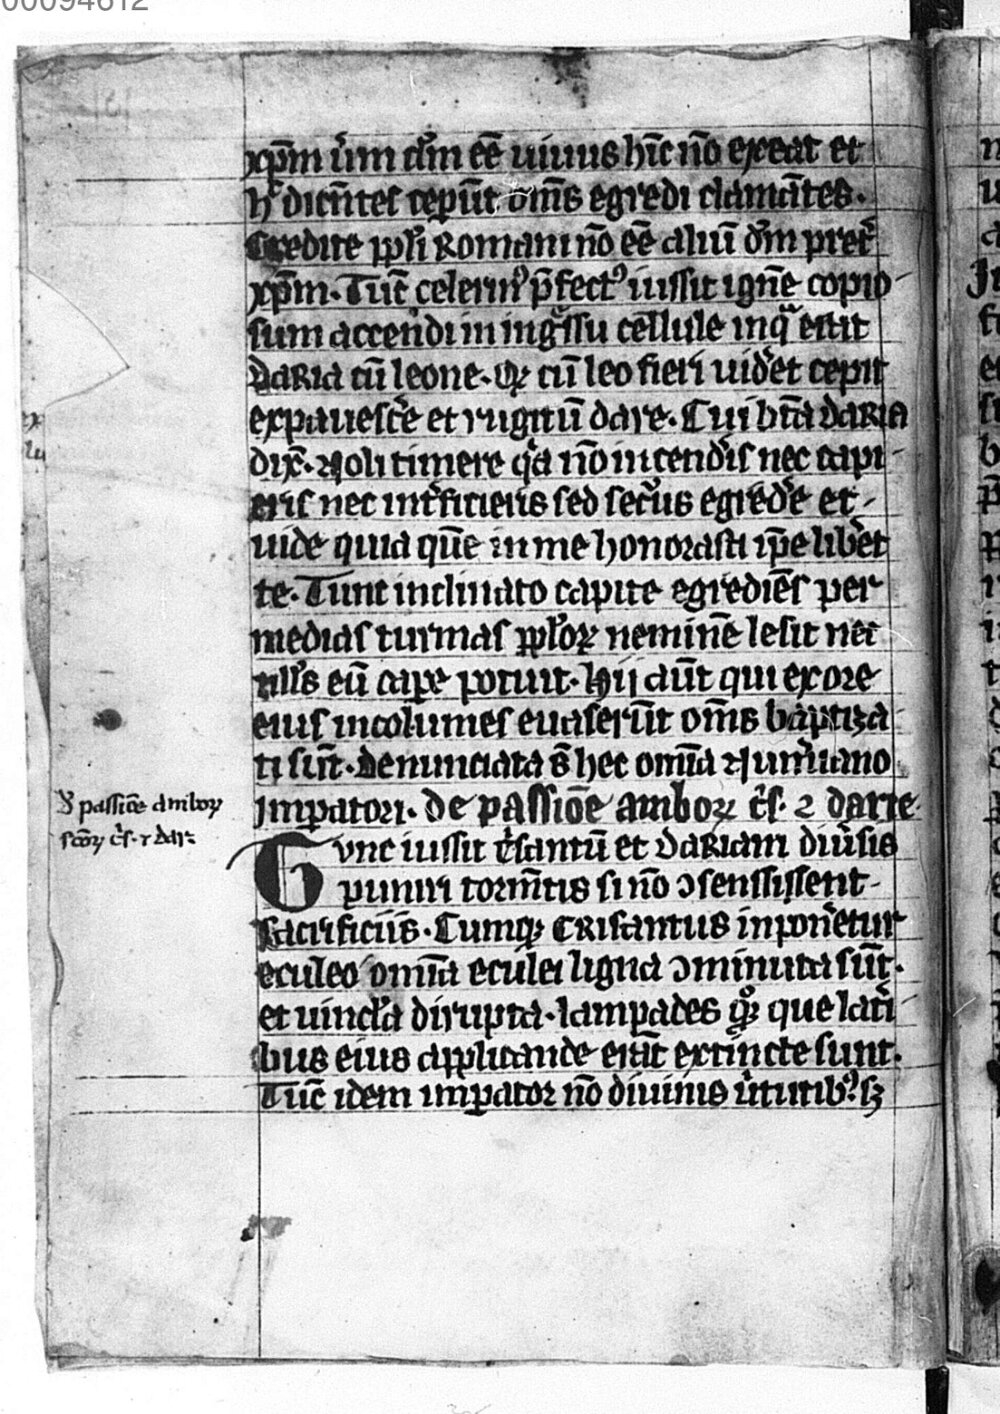 00094612
xp̄m u̓m dn̄m eē uiuus hīc nō exeat et
h̓ dicētes cepūt om̄s egredi clamātes.
Credite pp̄li Romani nō eē aliū dm̄ preť
xp̄m. Tūc celerin᷒ p̄fect᷒ iussit ignē copio-
sum accendi in ing̊ssu cellule in qͣ erat
Daria cū leone. Qꝫ cū leo fieri uid̓et cepit
expauesc̓e et rugitū dare. Cui btā̄ daria
dix̄. Noli timere qͥa nō incend̓is nec capi-
eris nec int̓ficieris sed secu̓us egred̓e et
uide quia quē in me honorasti ip̄e lib̓et
te. Tunc inclinato capite egrediēs per
medias turmas pp̄loꝝ neminē lesit nec
ullus eū cape potuit. Hij aūt qui ex ore
eius incolumes euaserūt om̄s baptiza
ti sūt. Denunciata s̄ hec om̄ia Numiano
Impatori. De passiōe amboꝝ c̓s. ⁊ darie
Tvnc iussit c̓santū et Dariam diu̓sis
puniri tormētis si nō ↄsensissent
sacrificiis. Cumqꝫ Crisantus inpon̓etur
eculeo om̄ia eculei ligna ↄminuta sūt.
et uincl̓a dirupta. lampades qꝫ que lat̓i
bus eius applicande erāt extincte sunt.
Tūc idem impator nō diuinis u̓tutib᷒ sꝫ
passiōe amboꝝ
scōꝝ c̓s. ⁊ dar̓